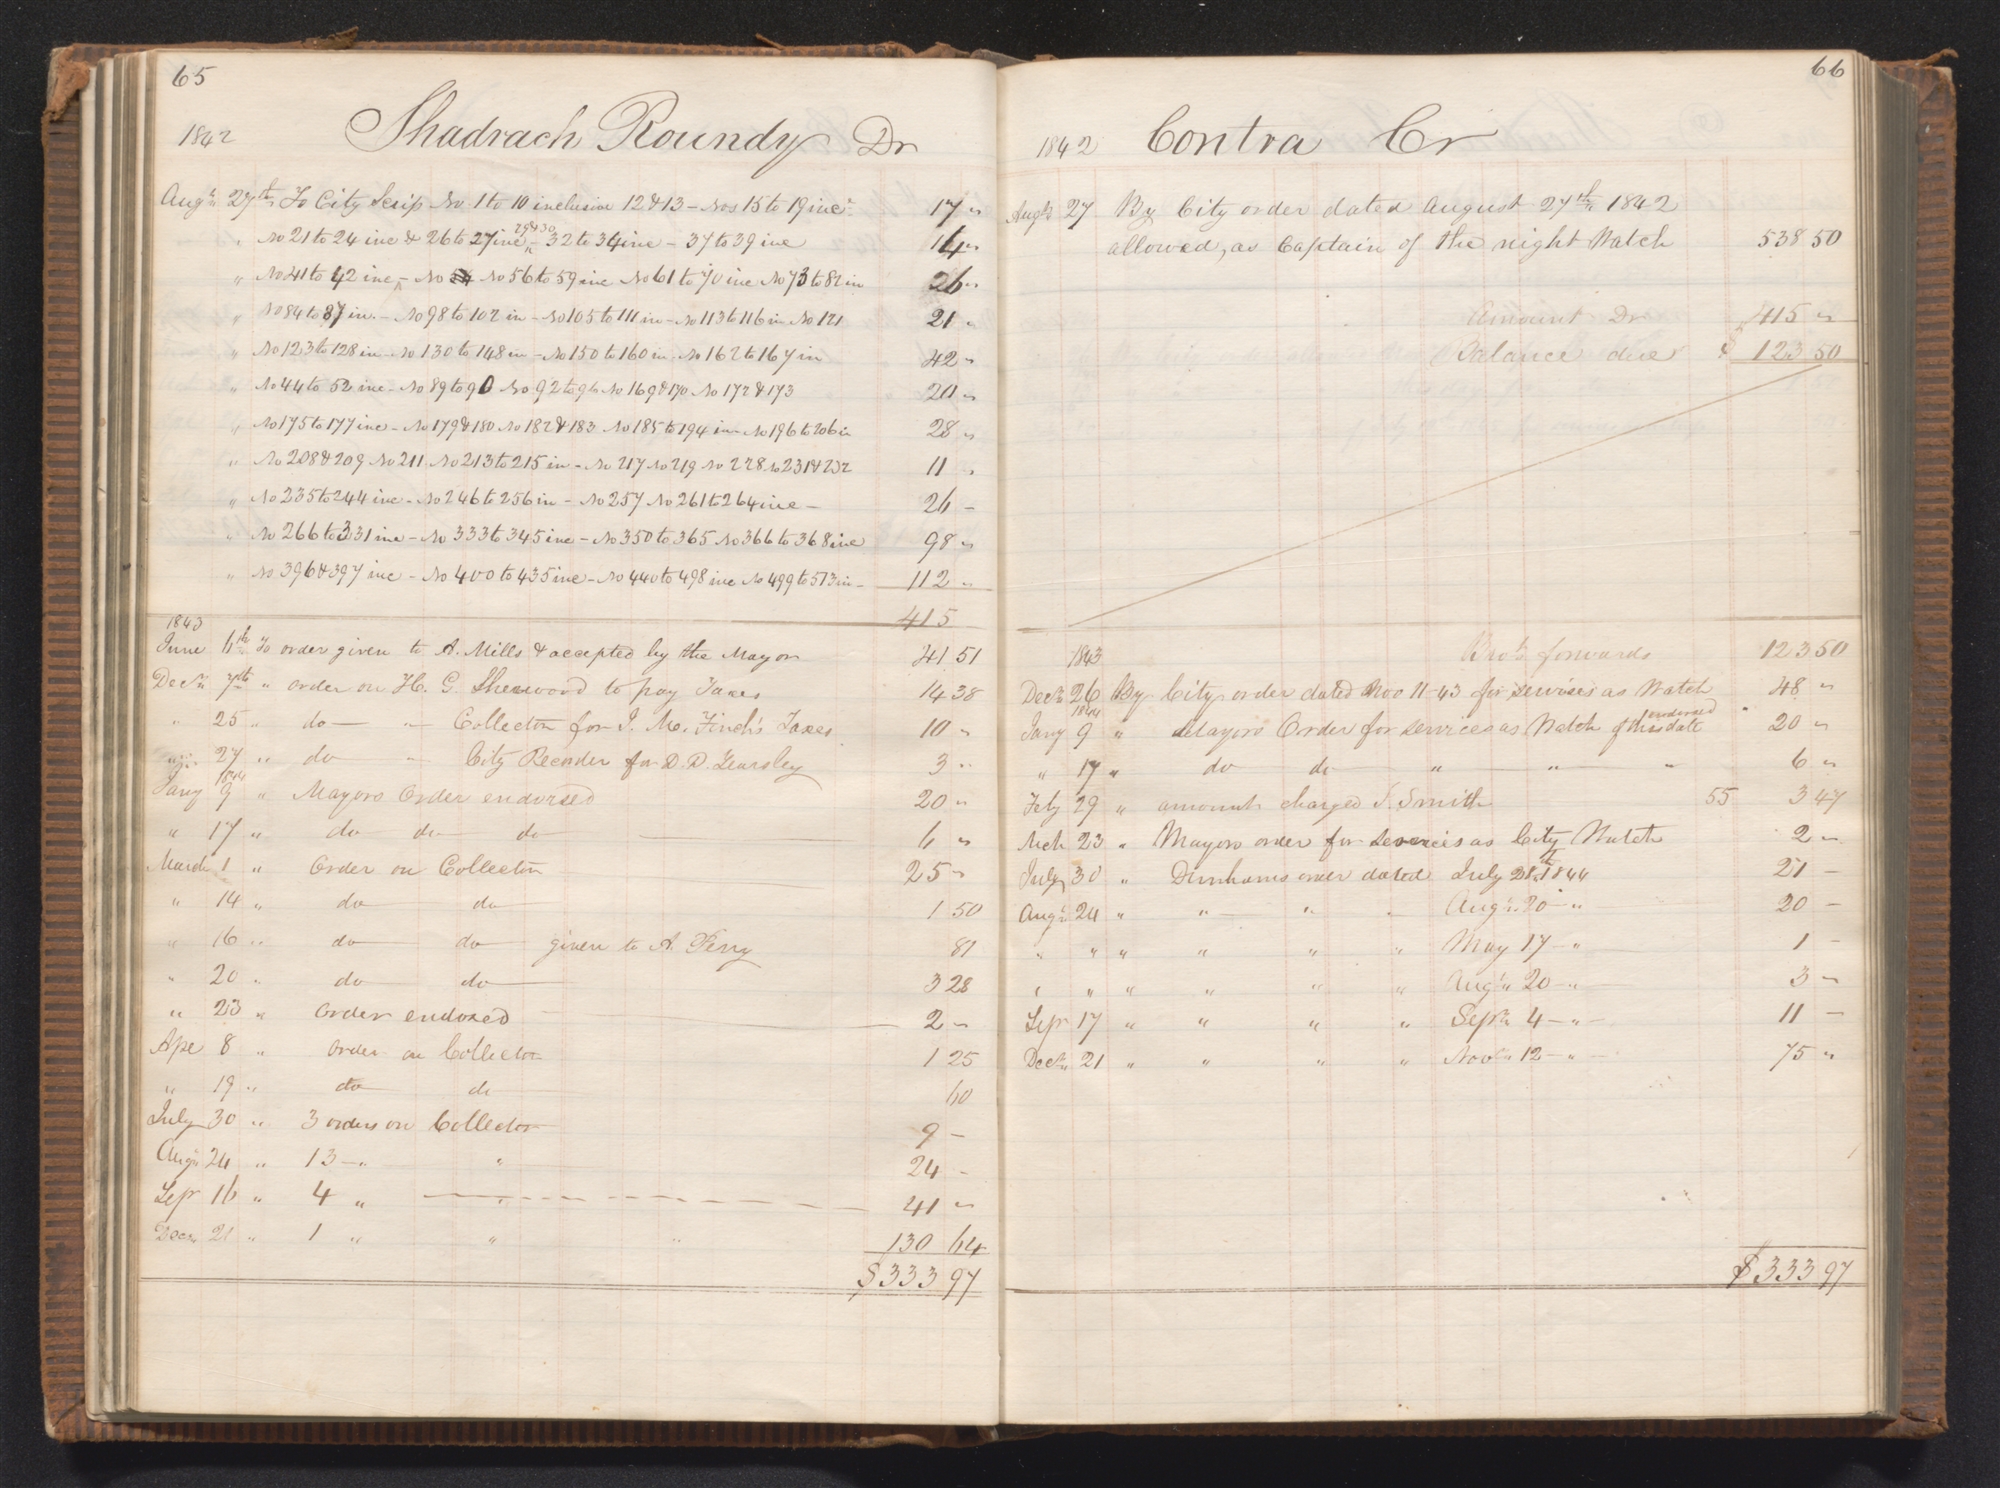 65
1842 Shadrach Roundy Dr
Augt 27th To City Scrip No 1 to 10 inclusive 12 & 13 - Nos 15 to 19 inc 17 "
" No 21 to 24 inc & 26 to 27 inc 29 & 30 " 32 to 34 inc - 37 to 39 inc 14 "
" No 41 to 42 inc - No No 56 to 59 inc No 61 to 70 inc No 73 to 82 in 26 "
" No 84 to 87 in - No 98 to 102 in - No 105 to 111 in - No 113 to 116 in No 121 21 "
" No 123 to 128 in - No 130 to 148 in - No 150 to 160 in - No 162 to 167 in 42 "
" No 44 to 52 inc - No 89 to 90 No 92 to 96 No 169 & 170 No 172 & 173 20 "
" No 175 to 177 inc - No 179 & 180 No 182 & 183 No 185 to 194 in - No 196 to 206 in 28 "
" No 208 & 209 No 211 No 213 to 215 in - No 217 No 219 No 228 No 231 & 232 11 "
" No 235 to 244 inc - No 246 to 256 in - No 257 No 261 to 264 inc - 26 -
" No 266 to 331 inc - No 333 to 345 inc - No 350 to 365 No 366 to 368 inc 98 "
" No 396 & 397 inc - No 400 to 435 inc - No 440 to 498 inc No 499 to 513 in - 112 "
415
1843
June 6th To order given to A. Mills & accepted by the Mayor 41 51
Decr 7th " order on H. G. Sherwood to pay Taxes 14 38
" 25 " do - " Collector for J. M. Finch's Taxes 10 "
" 27 " do - City Recorder for D. D. Yearsley 3 "
1844
Jany 9 " Mayors Order endorsed 20 "
" 17 " do do do 6 "
March 1 " Order on Collector 25 "
" 14 " do do 1 50
" 16 " do do given to A. Perry 81
" 20 " do do 3 28
" 23 " Order endorsed 2 "
Apr 8 " Order on Collector 1 25
" 19 " do do 60
July 30 " 3 orders on Collector 9 -
Augt 24 " 13 - " " 24 -
Sepr 16 " 4 " " 41 "
Decr 21 " 1 " " " 130 64
$333 97
66
1842 Contra Cr
Augt 27 By City order dated August 27th 1842
allowed, as Captain of the night Watch 538 50
Amount Dr 415 "
Balance due $ 123 50
Brot forwards 123 50
1843
Decr 26 By City order dated Nov 11-43 for services as Watch 48 "
1844
Jany 9 " Mayors Order for services as Watch of this date endorsed " 20 "
" 17 " do do " " " 6 "
Feby 29 " amount charged J. Smith 55 3 47
Mch 23 " Mayors order for services as City Watch 2 "
July 30 " Dunhams order dated July 28th 1844 21 -
Augt 24 " " " " Augt 20 - " 20 -
" " " " " " May 17 - " 1 -
" " " " " " Augt 20 - " 3 "
Sepr 17 " " " " Sepr 4 - " - 11 -
Decr 21 " " " " Novr 12 - " - 75 "
$333 97